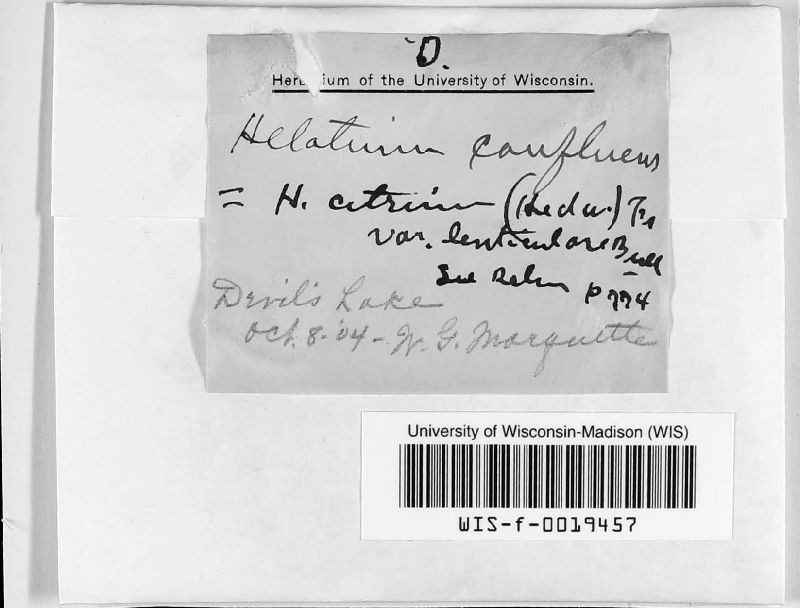 D.
Herbarium of the University of Wisconsin.
Helotium confluens
= H. citrinum (Hedw.) Fr
var. lenticulare Bull
See Rehm p 774
Devil's Lake
Oct. 8-'04 - W. G. Marquette
University of Wisconsin-Madison (WIS)
WIS-f-0019457